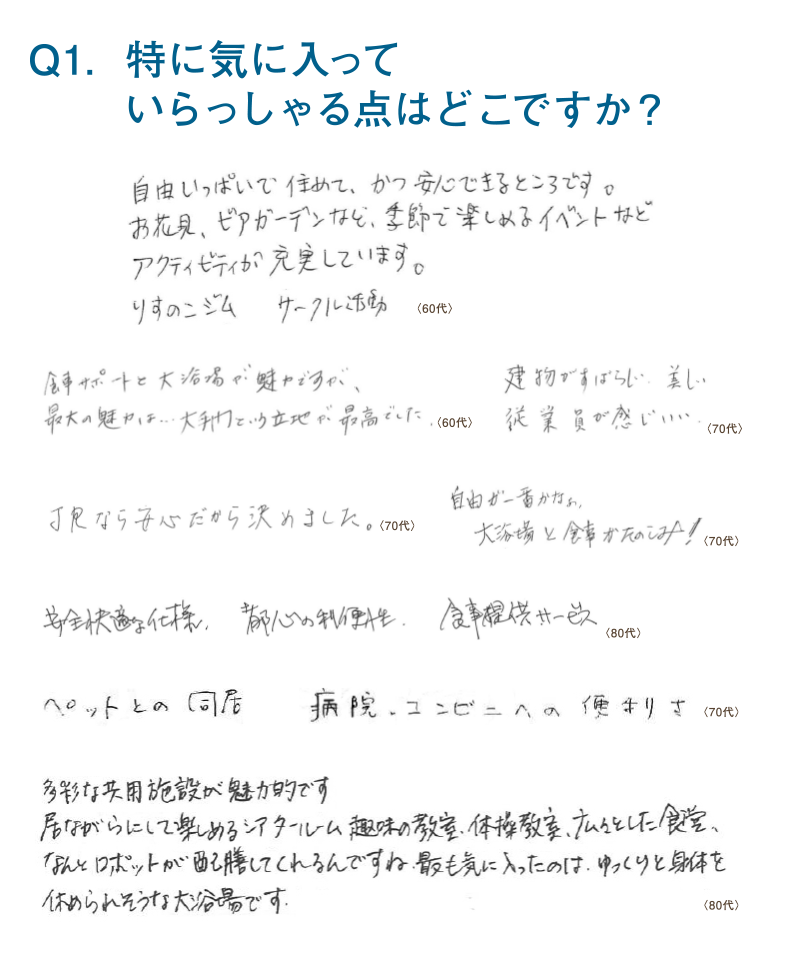 Q1. 特に気に入って
いらっしゃる点はどこですか？
自由いっぱいで住めて、かつ安心できるところです。
お花見、ビアガーデンなど、季節で楽しめるイベントなど
アクティビティが充実しています。
りすのこジム　サークル活動 〈60代〉
食事サポートと大浴場が魅力ですが、
最大の魅力は…大手町という立地が最高でした。〈60代〉
建物がすばらしい。美しい
従業員が感じいい。〈70代〉
J見なら安心だから決めました。〈70代〉
自由が一番かなぁ。
大浴場と食事がたのしみ！〈70代〉
安全快適な仕様、都心の利便性、食事提供サービス 〈80代〉
ペットとの同居　病院、コンビニへの便利さ 〈70代〉
多彩な共用施設が魅力的です
居ながらにして楽しめるシアタールーム、趣味の教室、体操教室、広々とした食堂、
なんとロボットが配膳してくれるんですね。最も気に入ったのは、ゆっくりと身体を
休められそうな大浴場です。〈80代〉